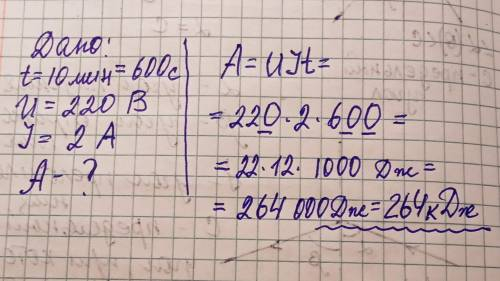 Дано:
t=10мин=600с
U=220 В
I= 2 А
A-?
A=UIt=
=220·2·600=
=22·12·1000 Дж=
=264 000Дж=264кДж